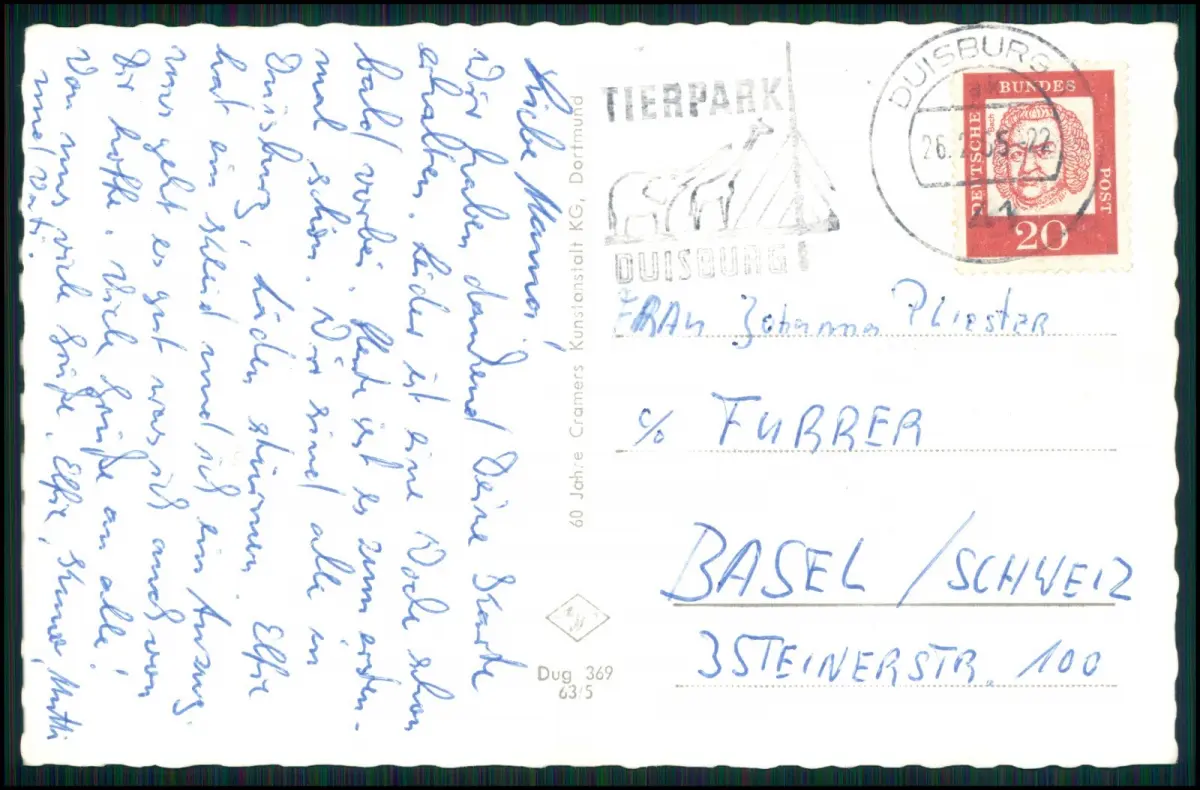 Liebe Mama!
Wir haben dankend Deine Karte
erhalten. Leider ist eine Woche schon
bald vorbei. Heute ist es zum ersten-
mal schön. Wir sind alle in
Duisburg, Läden stürmen. Elfie
hat ein Kleid und ich ein Anzug.
uns geht es gut was ich auch von
Dir hoffe. Viele Grüße an alle!
Von uns viele Grüße. Elfie, Mutti
und Vati.
60 Jahre Cramers Kunstanstalt KG, Dortmund
Dug 369
63/5
TIERPARK
DUISBURG!
DUISBURG
26.2.65-22
DEUTSCHE
BUNDES
POST
20
FRAU Johanna Pliester
c/o FURRER
BASEL / SCHWEIZ
3STEINERSTR. 100